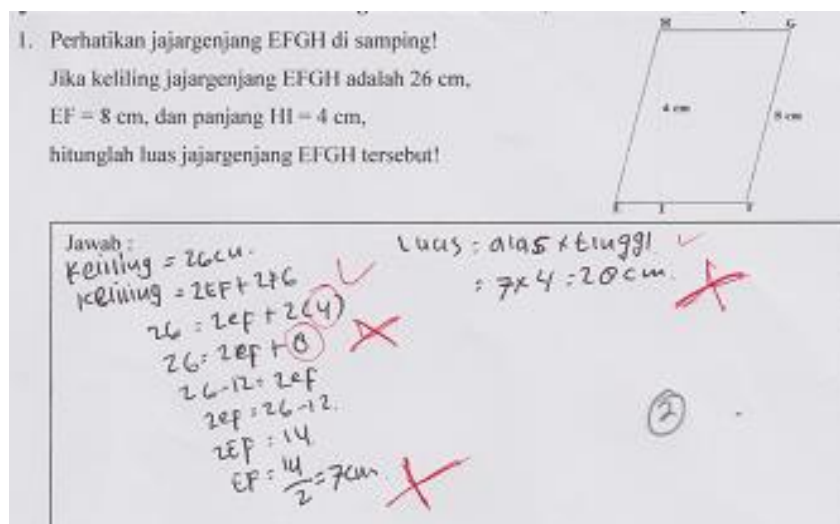 1. Perhatikan jajargenjang EFGH di samping!
Jika keliling jajargenjang EFGH adalah 26 cm,
EF = 8 cm, dan panjang HI = 4 cm,
hitunglah luas jajargenjang EFGH tersebut!
H G
4 cm
8 cm
E I F
Jawab :
Keliling = 26cm.
Keliling = 2EF + 2FG
26 = 2EF + 2(4)
26 = 2EF + 8
26-12 = 2EF
2EF = 26-12.
2EF = 14
EF = 14/2 = 7cm
Luas = alas x tinggi
= 7x4 = 28cm.
2